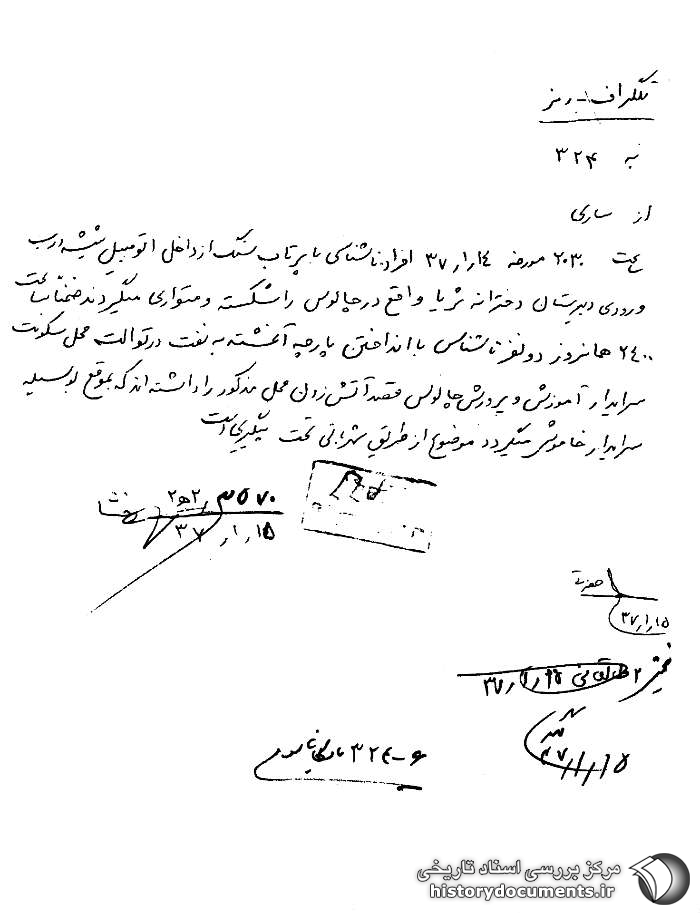 تلگراف - رمز
به ۳۲۴
از ساری
ساعت ۲۰۳۰ مورخه ۱۴/۱/۳۷ افراد ناشناسی با پرتاب سنگ از داخل اتومبیل شیشه درب
ورودی دبیرستان دخترانه ثریا واقع در چالوس را شکسته و متواری میگردند ضمناً ساعت
۲۴۰۰ همانروز دو نفر ناشناس با انداختن پارچه آغشته به نفت در توالت محل سکونت
سرایدار آموزش و پرورش چالوس قصد آتش زدن محل مذکور را داشته اند که بموقع بوسیله
سرایدار خاموش میگردد موضوع از طریق شهربانی تحت پیگیری است
۳۵۷۰ ۲ﻫ۲
۱۵/۱/۳۷
۱۵/۱/۳۷
۱۵/۱/۳۷
۱۵/۱/۳۷
۳۲۴-۶ بایگانی شود
مرکز بررسی اسناد تاریخی
historydocuments.ir